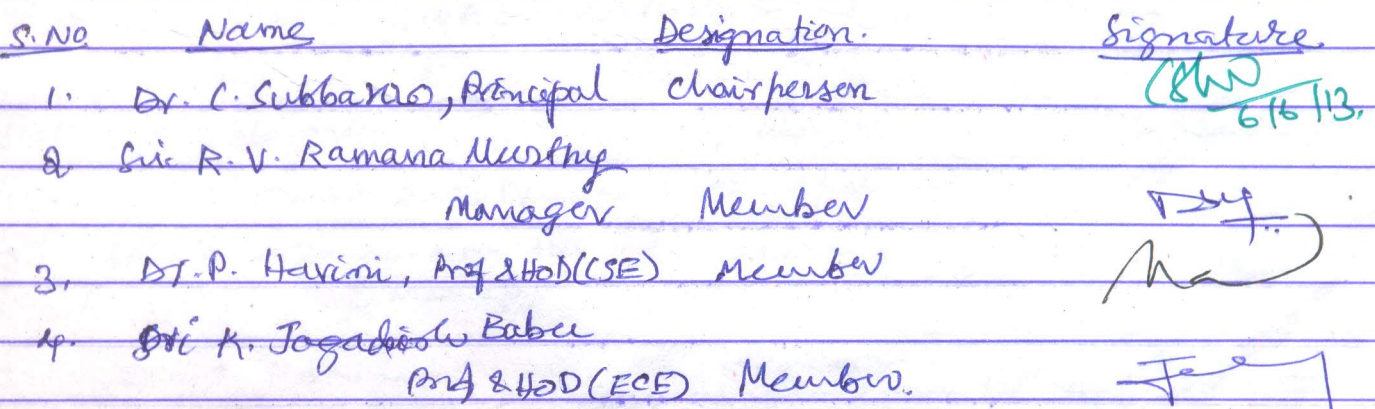 S.No Name Designation. Signature
1. Dr. C. Subbarao, Principal Chairperson
6/6/13.
2 Sri. R. V. Ramana Murthy
Manager Member
3. Dr. P. Harini, Prof & HoD(CSE) Member
4. Sri K. Jagadish Babu
Prof & HoD(ECE) Member.